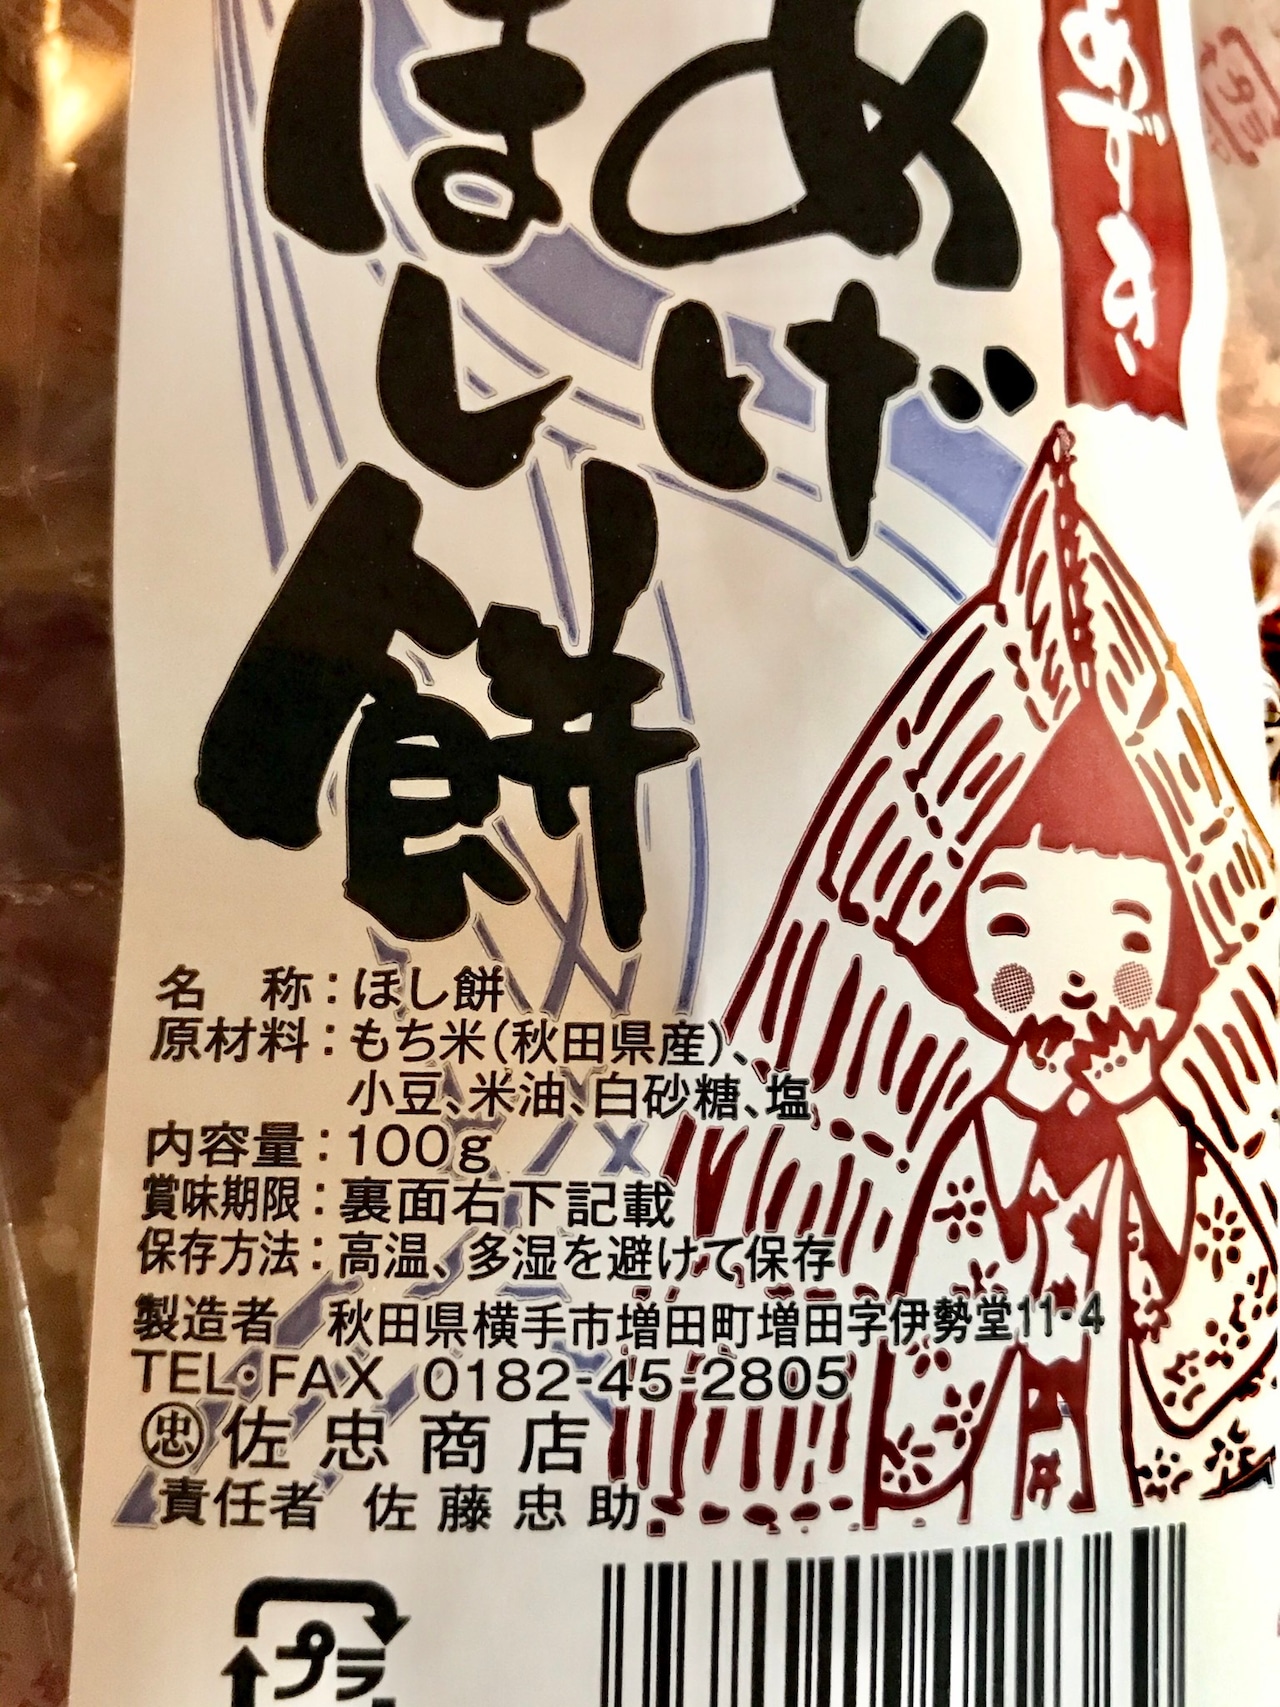 あずき
あげ
ほし餅
名　称：ほし餅
原材料：もち米（秋田県産）、
小豆、米油、白砂糖、塩
内容量：100g
賞味期限：裏面右下記載
保存方法：高温、多湿を避けて保存
製造者　秋田県横手市増田町増田字伊勢堂11-4
TEL・FAX 0182-45-2805
㊝佐忠商店
責任者　佐藤忠助
プラ